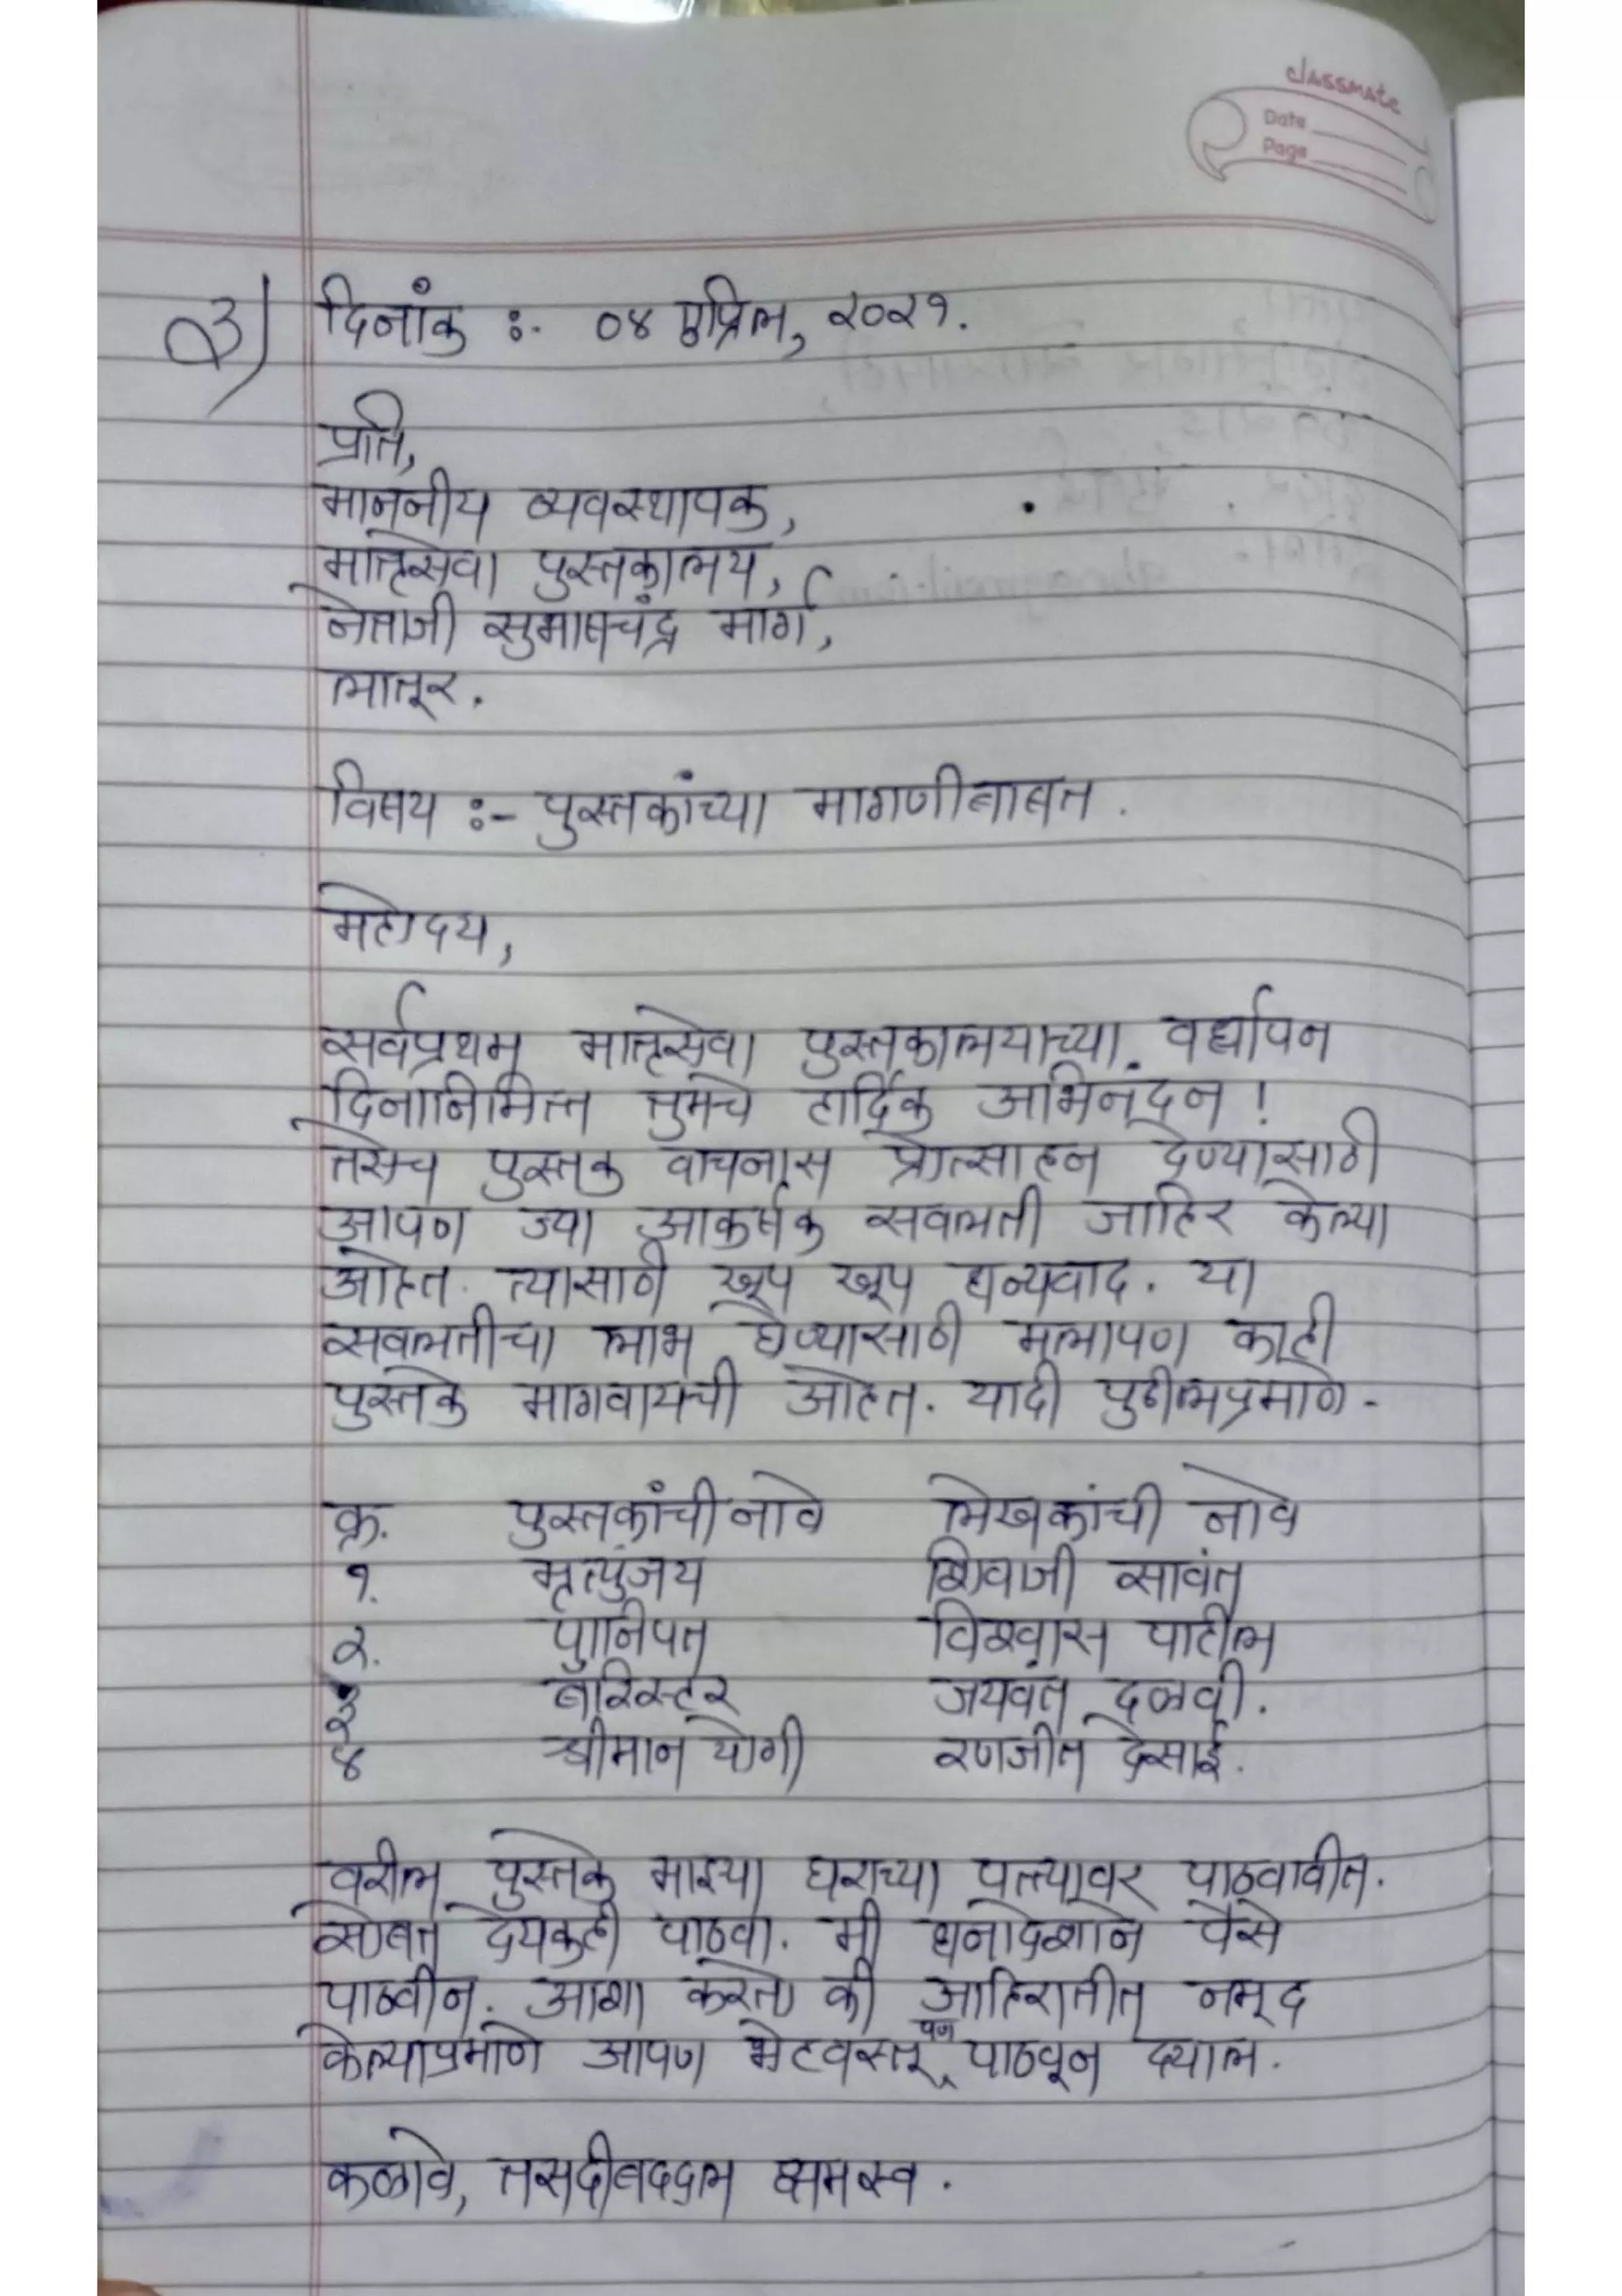 classmate
Date
Page
३) दिनांक :- ०४ एप्रिल, २०२१.
प्रति,
माननीय व्यवस्थापक,
मातृसेवा पुस्तकालय,
नेताजी सुभाषचंद्र मार्ग,
लातूर.
विषय :- पुस्तकांच्या मागणीबाबत.
महोदय,
सर्वप्रथम मातृसेवा पुस्तकालयाच्या वर्धापन
दिनानिमित्त तुमचे हार्दिक अभिनंदन !
तसेच पुस्तक वाचनास प्रोत्साहन देण्यासाठी
आपण ज्या आकर्षक सवलती जाहिर केल्या
आहेत. त्यासाठी खूप खूप धन्यवाद. या
सवलतीचा लाभ घेण्यासाठी मलापण काही
पुस्तके मागवायची आहेत. यादी पुढीलप्रमाणे -
क्र. पुस्तकांची नावे लेखकांची नावे
१. मृत्युंजय शिवाजी सावंत
२. पानिपत विश्वास पाटील
३ बॅरिस्टर जयवंत दळवी.
४ श्रीमान योगी रणजीत देसाई.
वरील पुस्तके माझ्या घराच्या पत्त्यावर पाठवावीत.
सोबत देयकही पाठवा. मी धनादेशाने पैसे
पाठवीन. आशा करतो की जाहिरातीत नमूद
केल्याप्रमाणे आपण भेटवस्तू पण पाठवून द्याल.
कळावे, तसदीबद्दल क्षमस्व.